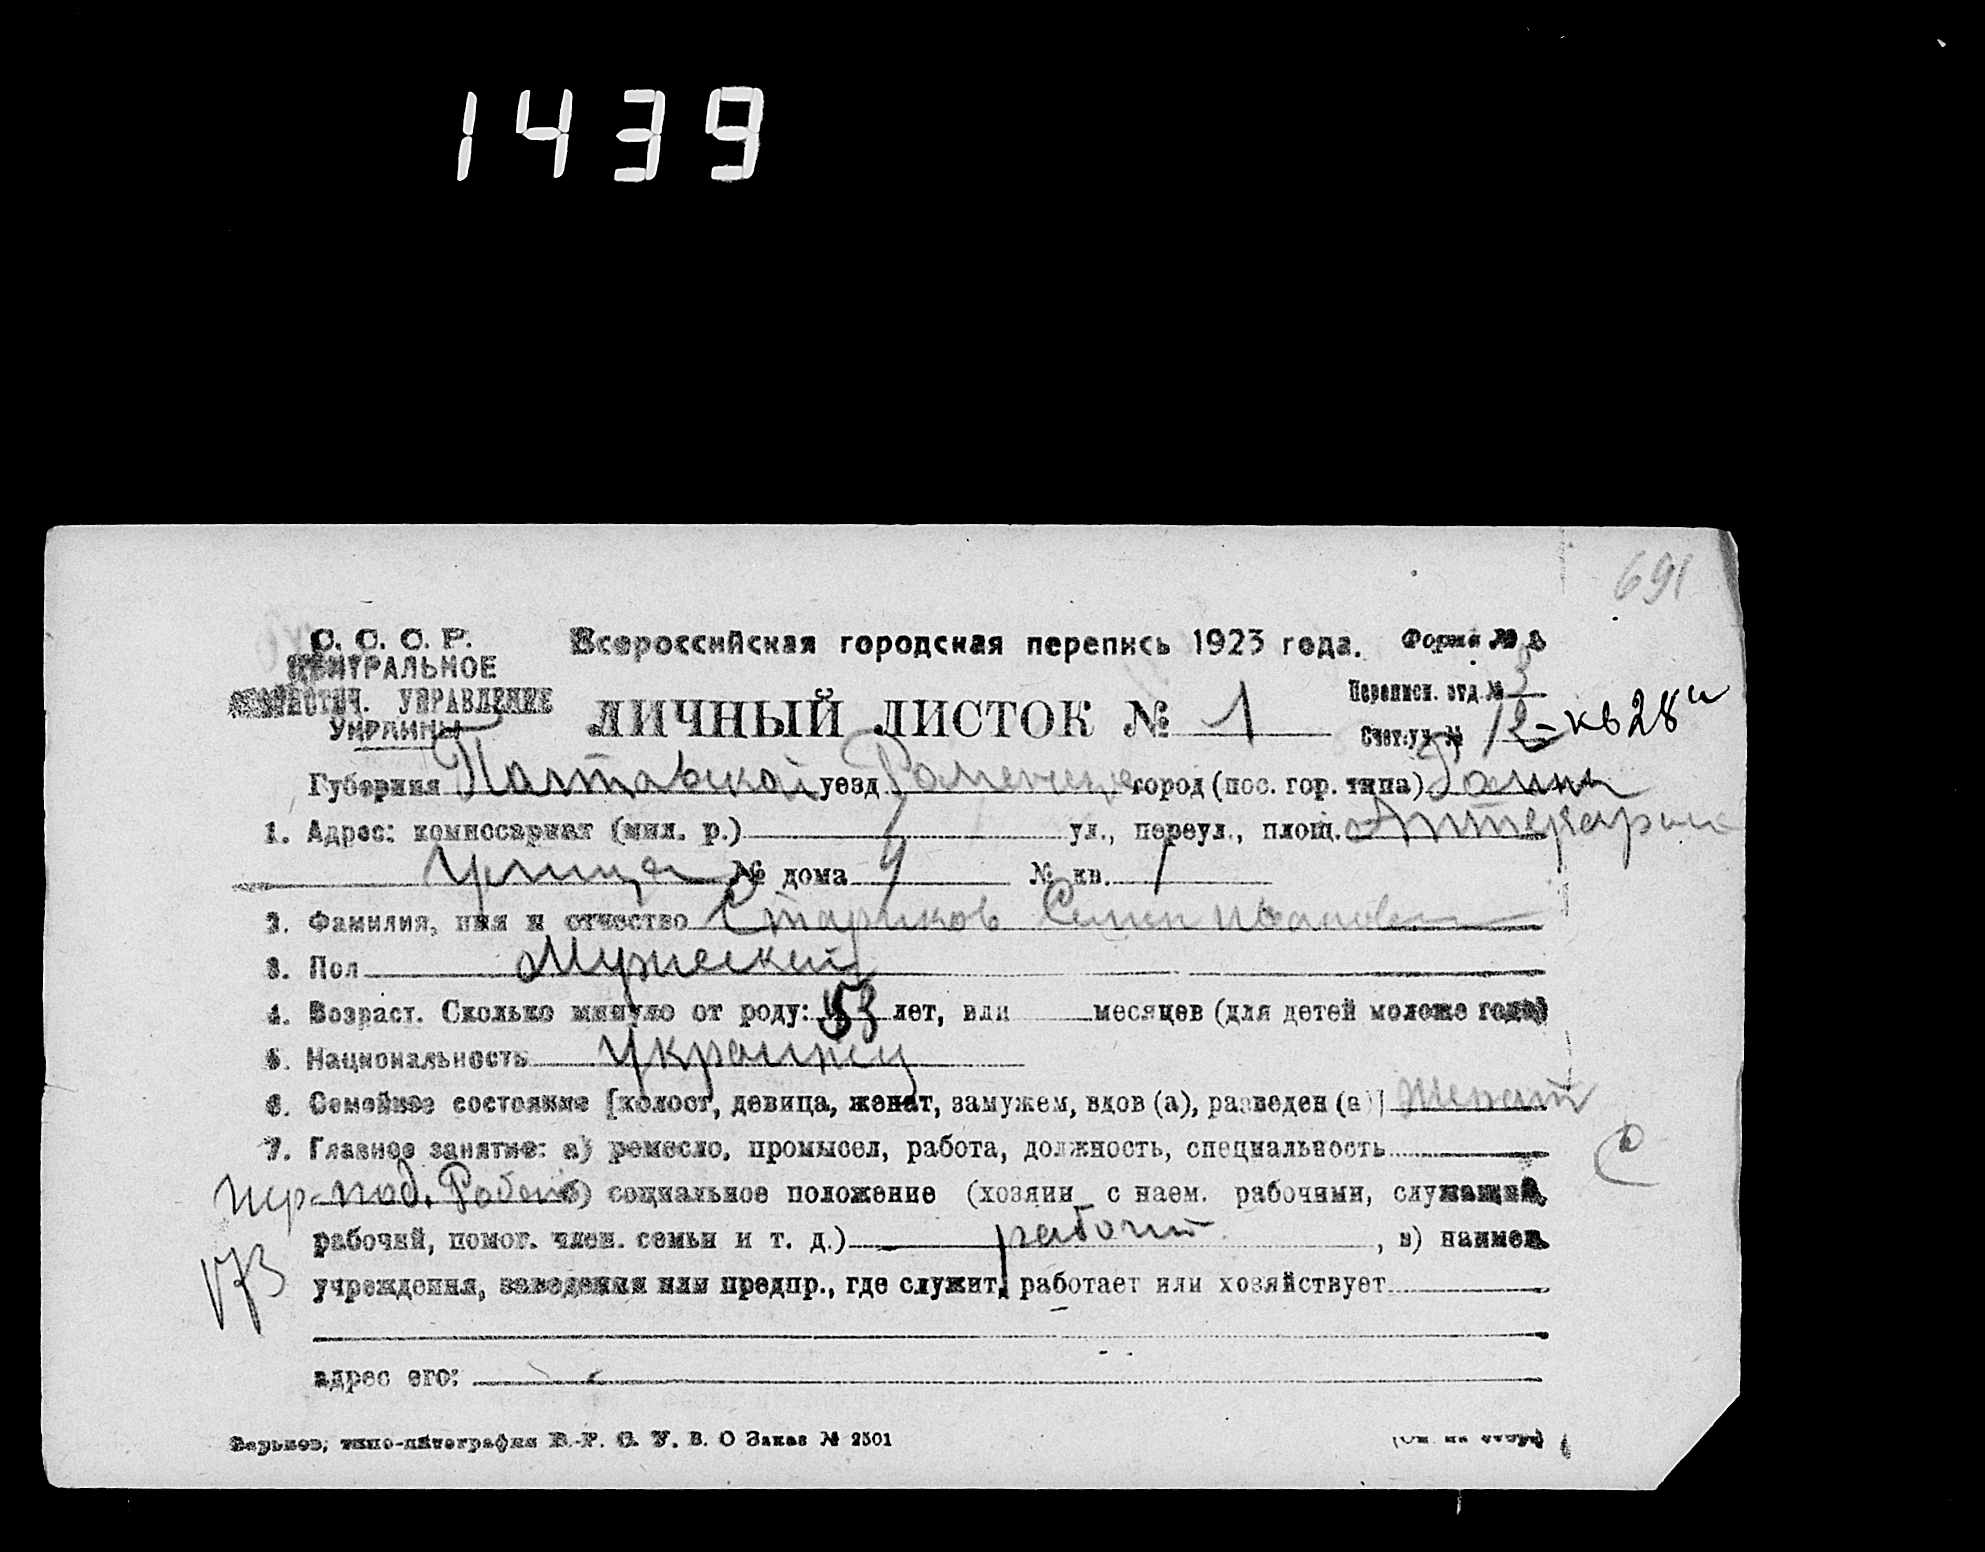 1439
691
С. С. С. Р.
ЦЕНТРАЛЬНОЕ
СТАТИСТИЧ. УПРАВЛЕНИЕ
УКРАИНЫ
Всероссийская городская перепись 1923 года. Форма №
Переписн. отд. № 3
ЛИЧНЫЙ ЛИСТОК № 1
Счетн. уч. № 12 - кв 28
Губерния Полтавской уезд Роменский город (пос. гор. типа) Ромны
1. Адрес: комиссариат (мил. р.) ул., переул., площ. Аптекарская
улица № дома 9 № кв. 1
2. Фамилия, имя и отчество Стариков Семен Иванович
3. Пол Мужеский
4. Возраст. Сколько минуло от роду: 53 лет, или месяцев (для детей моложе года)
5. Национальность Украинец
6. Семейное состояние [холост, девица, женат, замужем, вдов (а), разведен (а)] женат
7. Главное занятие: а) ремесло, промысел, работа, должность, специальность
чер-под. б) социальное положение (хозяин с наем. рабочими, служащий,
рабочий, помог. член. семьи и т. д.) рабочий, в) наимен.
173 учреждения, заведения или предпр., где служит, работает или хозяйствует
адрес его:
Харьков, типо-литография В.-Р. С. У. В. О Заказ № 2501
(См. на обор.)